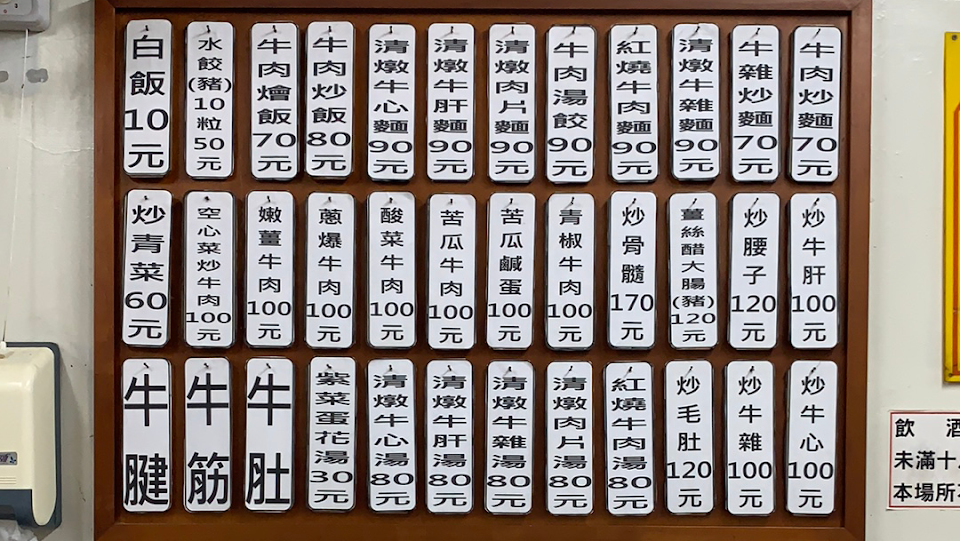 牛肉炒麵70元
牛雜炒麵70元
清燉牛雜麵90元
紅燒牛肉麵90元
牛肉湯餃90元
清燉肉片麵90元
清燉牛肝麵90元
清燉牛心麵90元
牛肉炒飯80元
牛肉燴飯70元
水餃(豬)10粒50元
白飯10元
炒牛肝100元
炒腰子120元
薑絲醋大腸(豬)120元
炒骨髓170元
青椒牛肉100元
苦瓜鹹蛋100元
苦瓜牛肉100元
酸菜牛肉100元
蔥爆牛肉100元
嫩薑牛肉100元
空心菜炒牛肉100元
炒青菜60元
炒牛心100元
炒牛雜100元
炒毛肚120元
紅燒牛肉湯80元
清燉肉片湯80元
清燉牛雜湯80元
清燉牛肝湯80元
清燉牛心湯80元
紫菜蛋花湯30元
牛肚
牛筋
牛腱
飲 酒
未滿十
本場所